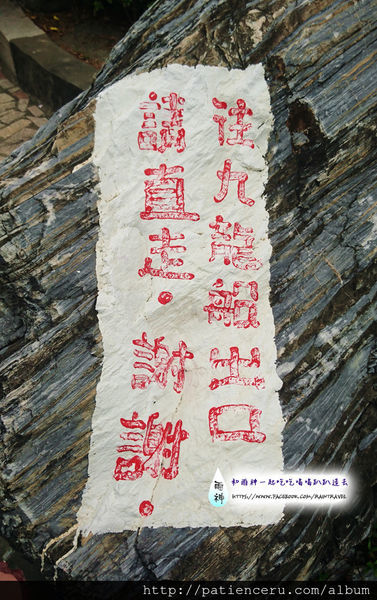 往九龍船出口
請直走．謝謝．
雨神
和雨神一起吃吃喝喝趴趴造去
HTTPS://WWW.FACEBOOK.COM/RAINTRAVEL
http://patienceru.com/album